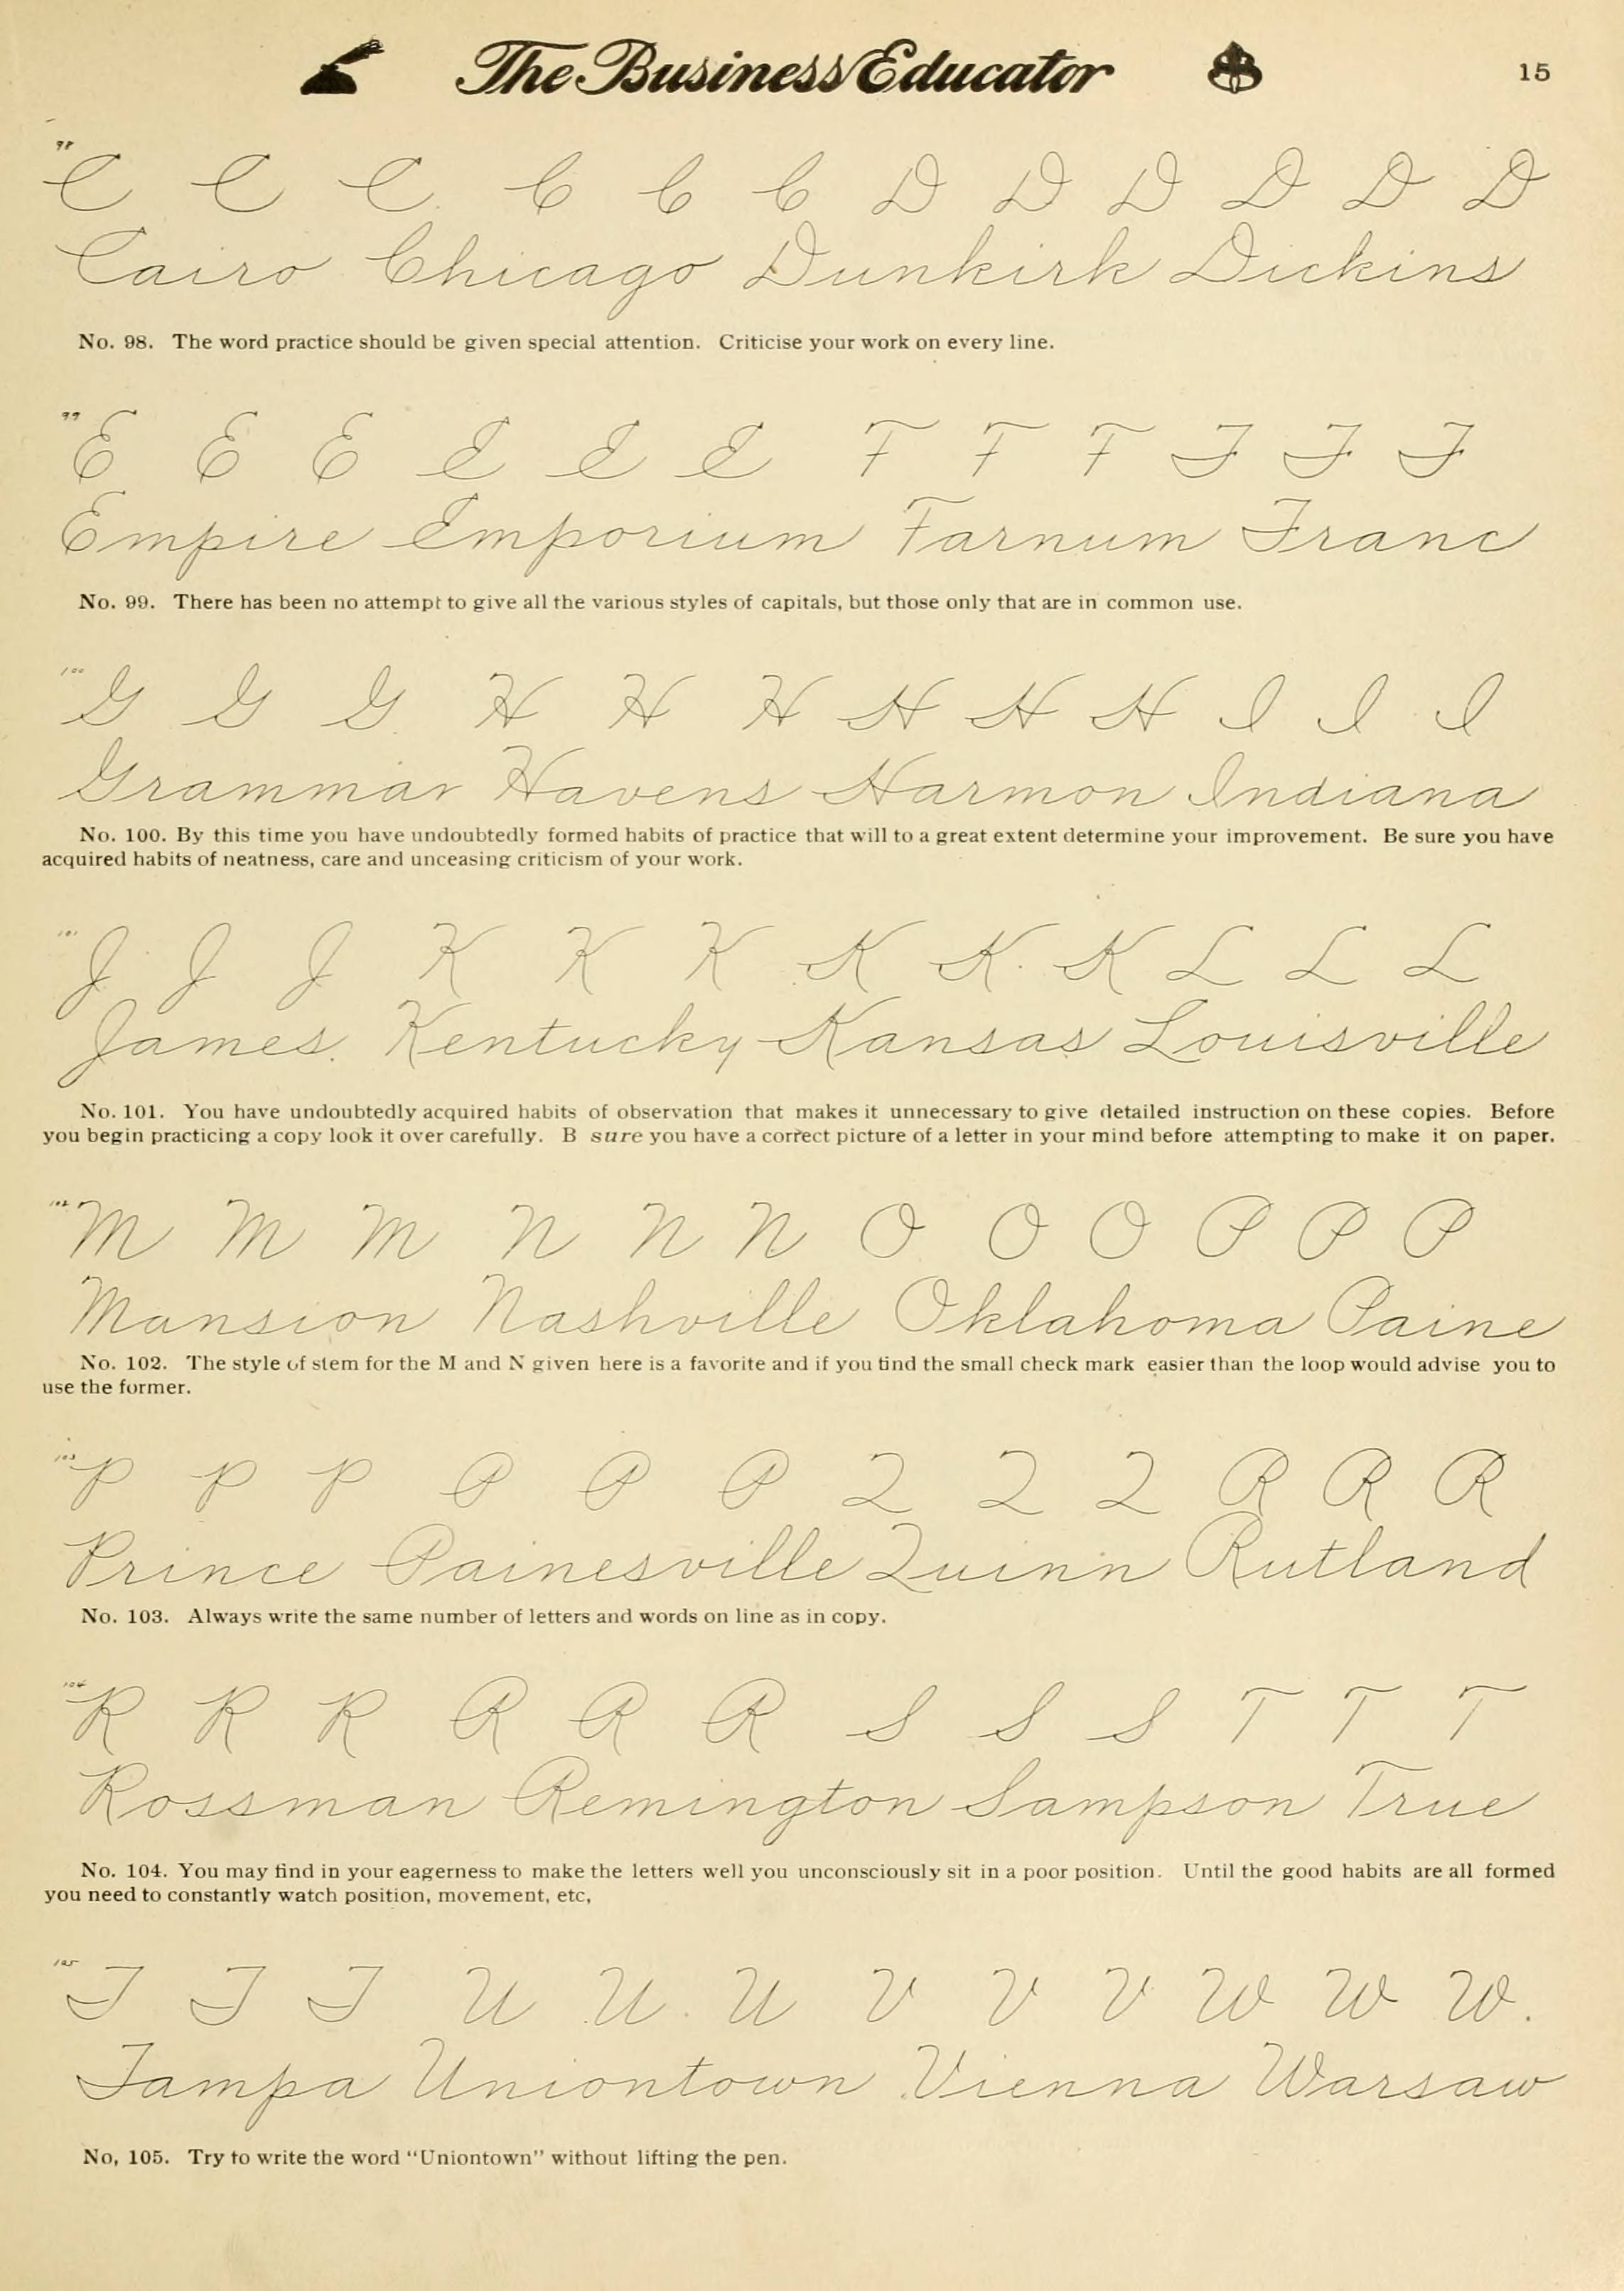 The Business Educator 15
98 C C C C C C D D D D D D
Cairo Chicago Dunkirk Dickins
No. 98. The word practice should be given special attention. Criticise your work on every line.
99 E E E E E E F F F F F F
Empire Emporium Farnum Franc
No. 99. There has been no attempt to give all the various styles of capitals, but those only that are in common use.
100 G G G H H H H H H I I I
Grammar Havens Harmon Indiana
No. 100. By this time you have undoubtedly formed habits of practice that will to a great extent determine your improvement. Be sure you have
acquired habits of neatness, care and unceasing criticism of your work.
101 J J J K K K K K K L L L
James. Kentucky Kansas Louisville
No. 101. You have undoubtedly acquired habits of observation that makes it unnecessary to give detailed instruction on these copies. Before
you begin practicing a copy look it over carefully. B sure you have a correct picture of a letter in your mind before attempting to make it on paper.
102 M M M N N N O O O P P P
Mansion Nashville Oklahoma Paine
No. 102. The style of stem for the M and N given here is a favorite and if you find the small check mark easier than the loop would advise you to
use the former.
103 P P P P P P Q Q Q R R R
Prince Painesville Quinn Rutland
No. 103. Always write the same number of letters and words on line as in copy.
104 R R R R R R S S S T T T
Rossman Remington Sampson True
No. 104. You may find in your eagerness to make the letters well you unconsciously sit in a poor position. Until the good habits are all formed
you need to constantly watch position, movement, etc,
105 T T T U U U V V V W W W.
Tampa Uniontown Vienna Warsaw
No, 105. Try to write the word "Uniontown" without lifting the pen.